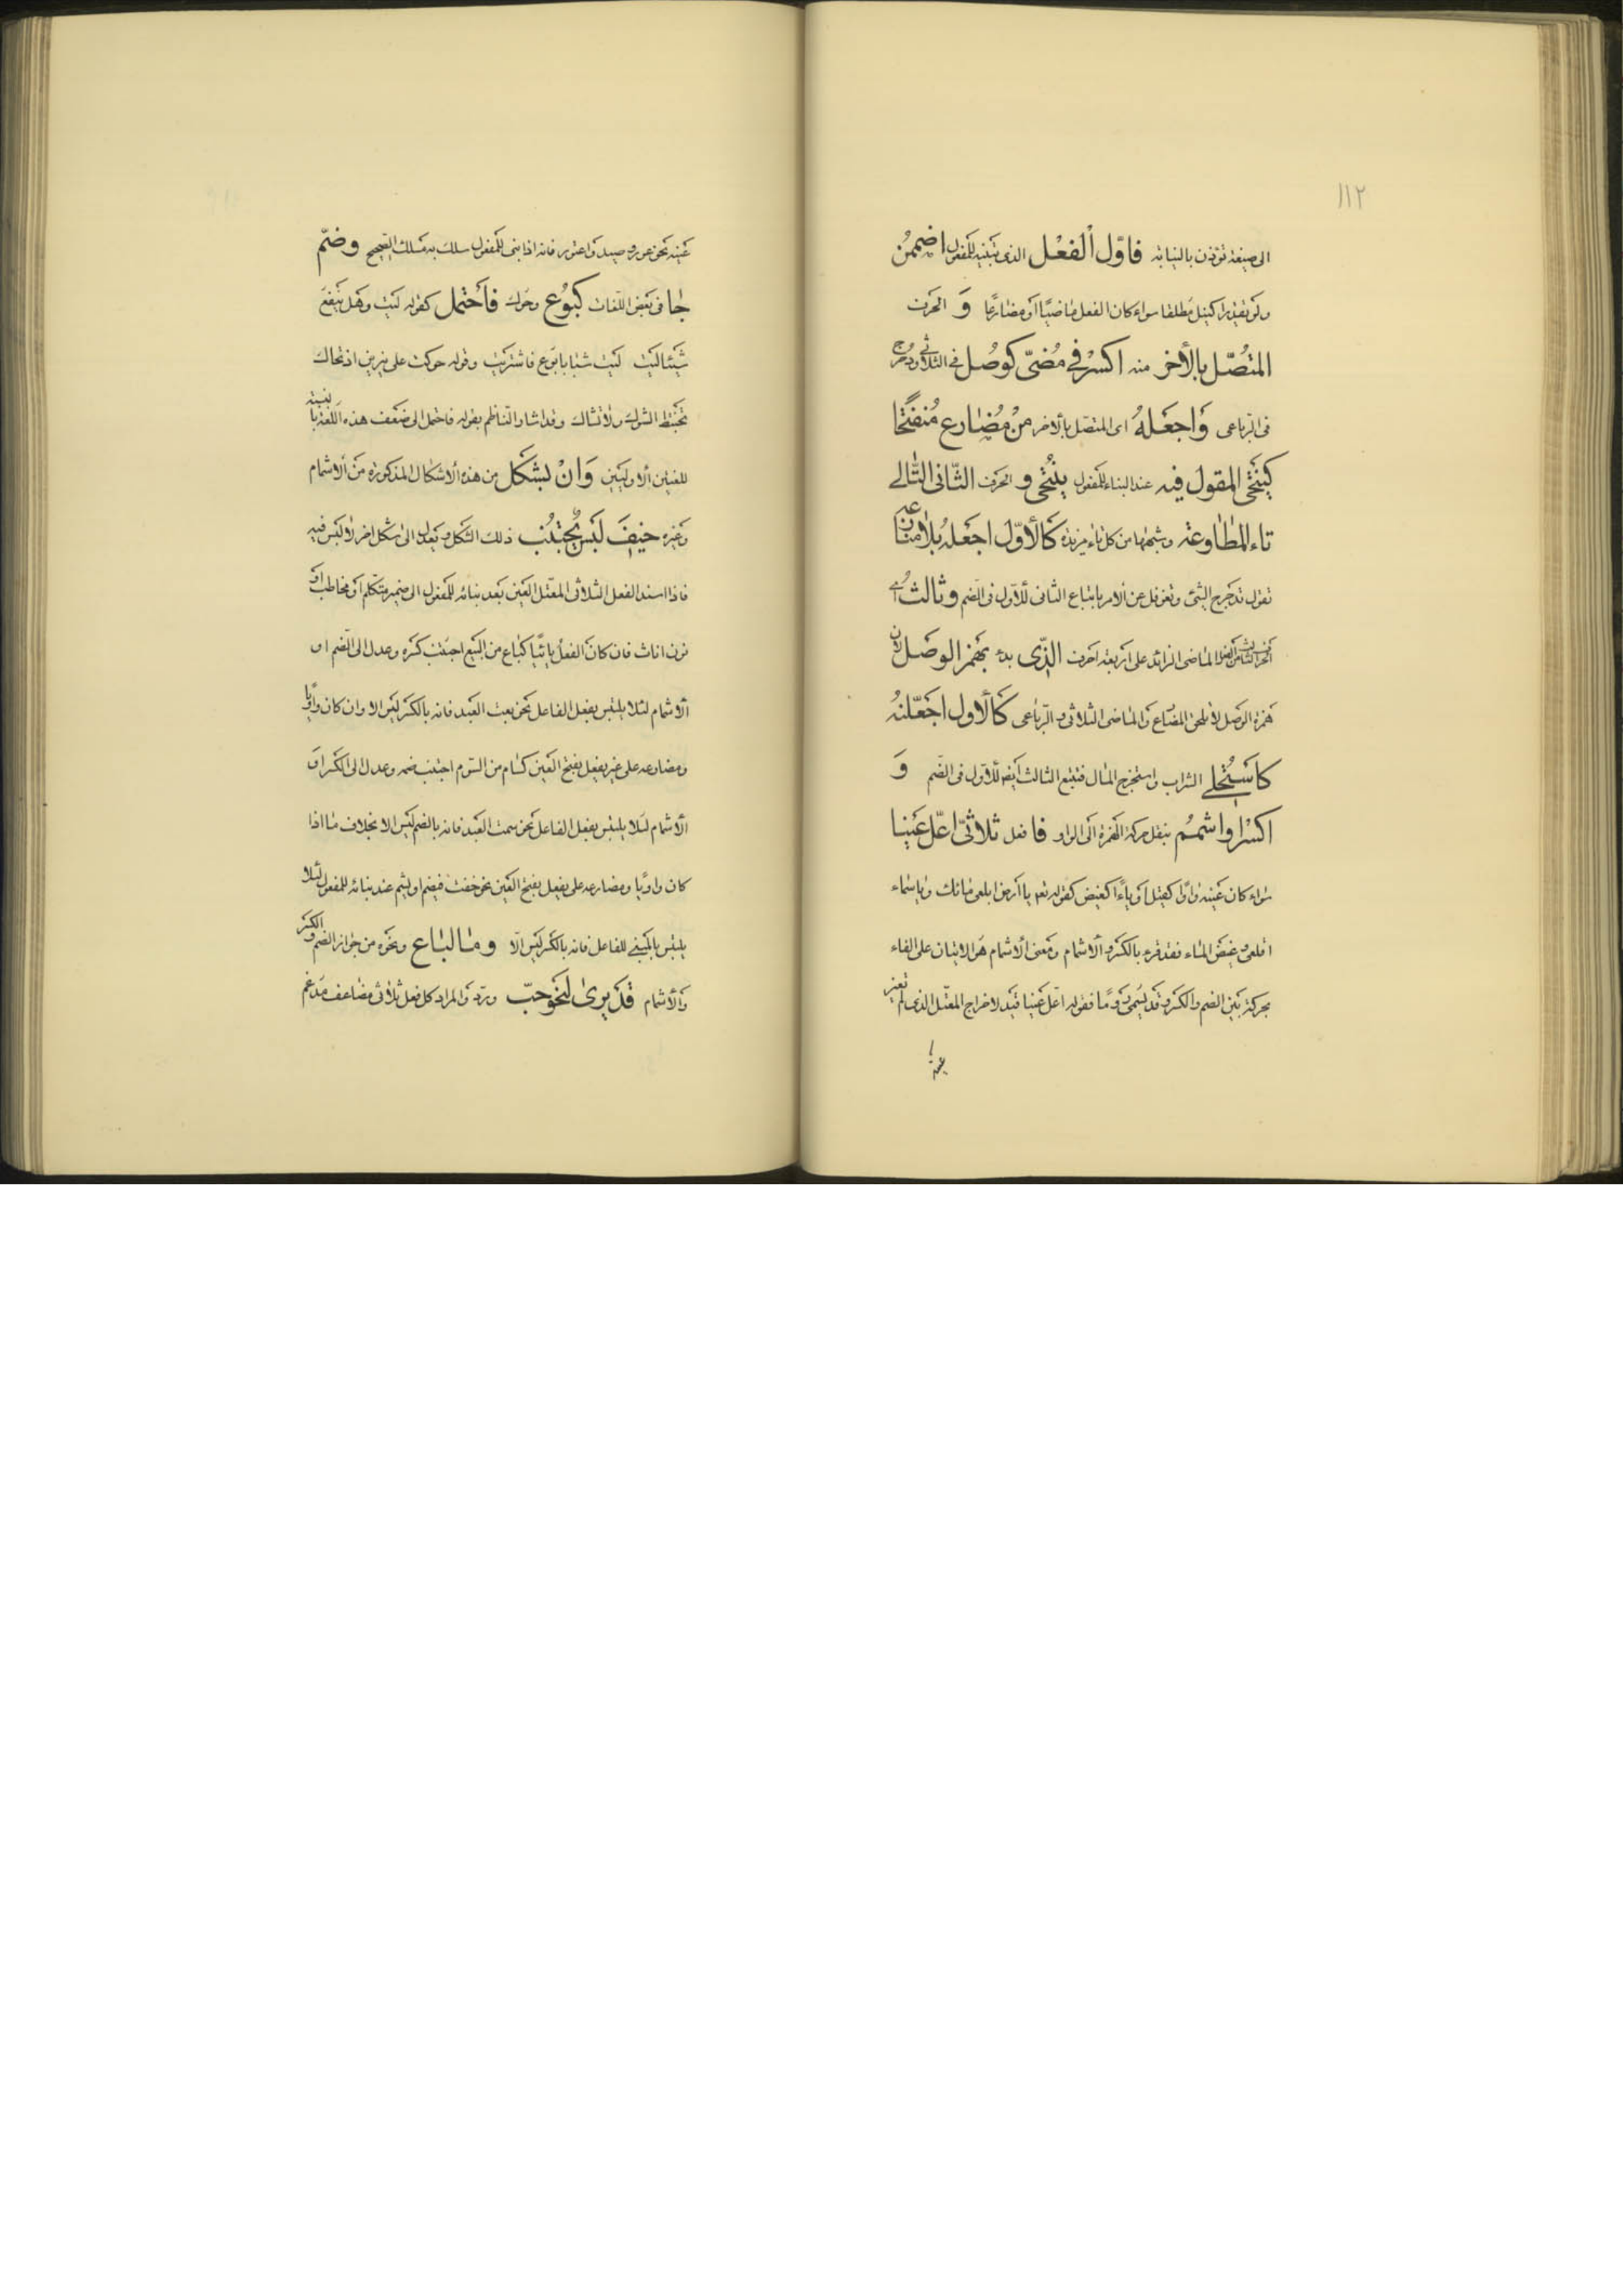 ١١٢
الى صيغة تؤذن بالنيابة فاوّل الفعل الذى تبنيه للمفعول اضممن
ولو تقديرا كقيل مطلقا سواء كان الفعل ماضيًا او مضارعًا وَ الحرف
المتّصل بالأخر منه اكسر فى مُضىّ كوُصل فى الثلاثى ودحرج
فى الرباعى وَاجعَلهُ اى المتصل بالاخر منْ مُضارع مُنفتحًا
كينتحى المقول فيه عند البناء للمفعول يُنتحى و الحرف الثّانى التّالى
تاء المطاوعة وشبهها من كل تاء مزيدة كالأوّل اجعَلهُ بلا منازعة
تقول تدحرج الشئ وتغوفل عن الامر باتباع الثانى للأوّل فى الضم وثالث
الماضى الزائد على اربعة احرف الّذى بدء بهمز الوصل لان
همزة الوصل لا تلحق المضارع والماضى الثلاثى والرباعى كالاول اجعَلنهُ
كاسْتُحلى الشراب واستخرج المال فتتبع الثالث ايضا للأوّل فى الضم وَ
اكسْر او اشممُ بنقل حركة الهمزة الى الواو فا فعل ثلاثىّ اعلّ عَينا
سواء كان عينه واوًا كقيل او ياءً كغيض كقوله تعم يا ارض ابلعى مائك وياسماء
اقلعى وغيض الماء فقد قرء بالكسر والاشمام ومعنى الاشمام هو الاتيان على الفاء
بحركة بين الضم والكسر وقد يسمى رومًا فقوله اعلّ عَينا قيد لاخراج المعتل الذى لم تغير
عينه
عينه نحو عور وصيد واعتور فانه اذا بنى للمفعول سلك به مسلك الصحيح وضمّ
جا فى بعض اللّغات كبُوْع وحوك فاحتمل كقوله ليت وهل ينفع
شيئا ليت ليت شبابا بوع فاشتريت وقوله حوكت على نيرين اذ تحاك
تختبط الشوك ولا تشاك وقد اشار الناظم بقوله فاحتمل الى ضعف هذه اللغة بالنسبة
للغتين الاوليين وَانْ بشكل من هذه الاشكال المذكورة من الاشمام
وغيره خيفَ لبس يُجتنب ذلك الشكل ويعدل الى شكل اخر لا لبس فيه
فاذا اسند الفعل الثلاثى المعتل العين بعد بنائه للمفعول الى ضمير متكلم او مخاطب او
نون اناث فان كان الفعل يائيًّا كباع من البيع اجتنب كسره وعدل الى الضم او
الاشمام لئلا يلتبس بفعل الفاعل نحو بعت العبد فانه بالكسر ليس الا وان كان واويًّا
ومضارعه على غير يفعل بفتح العين كسام من السّوم اجتنب ضمه وعدل الى الكسر او
الاشمام لئلا يلتبس بفعل الفاعل نحو سمت العبد فانه بالضم ليس الا بخلاف ما اذا
كان واويًا ومضارعه على يفعل بفتح العين نحو خفت فيضم او يشم عند بنائه للمفعول لئلا
يلتبس بالمبنى للفاعل فانه بالكسر ليس الّا ومَا لباع ونحوه من جواز الضم والكسر
والاشمام قَدْ يرىٰ لنحو حبّ وردّ والمراد كل فعل ثلاثى مضاعف مدغم